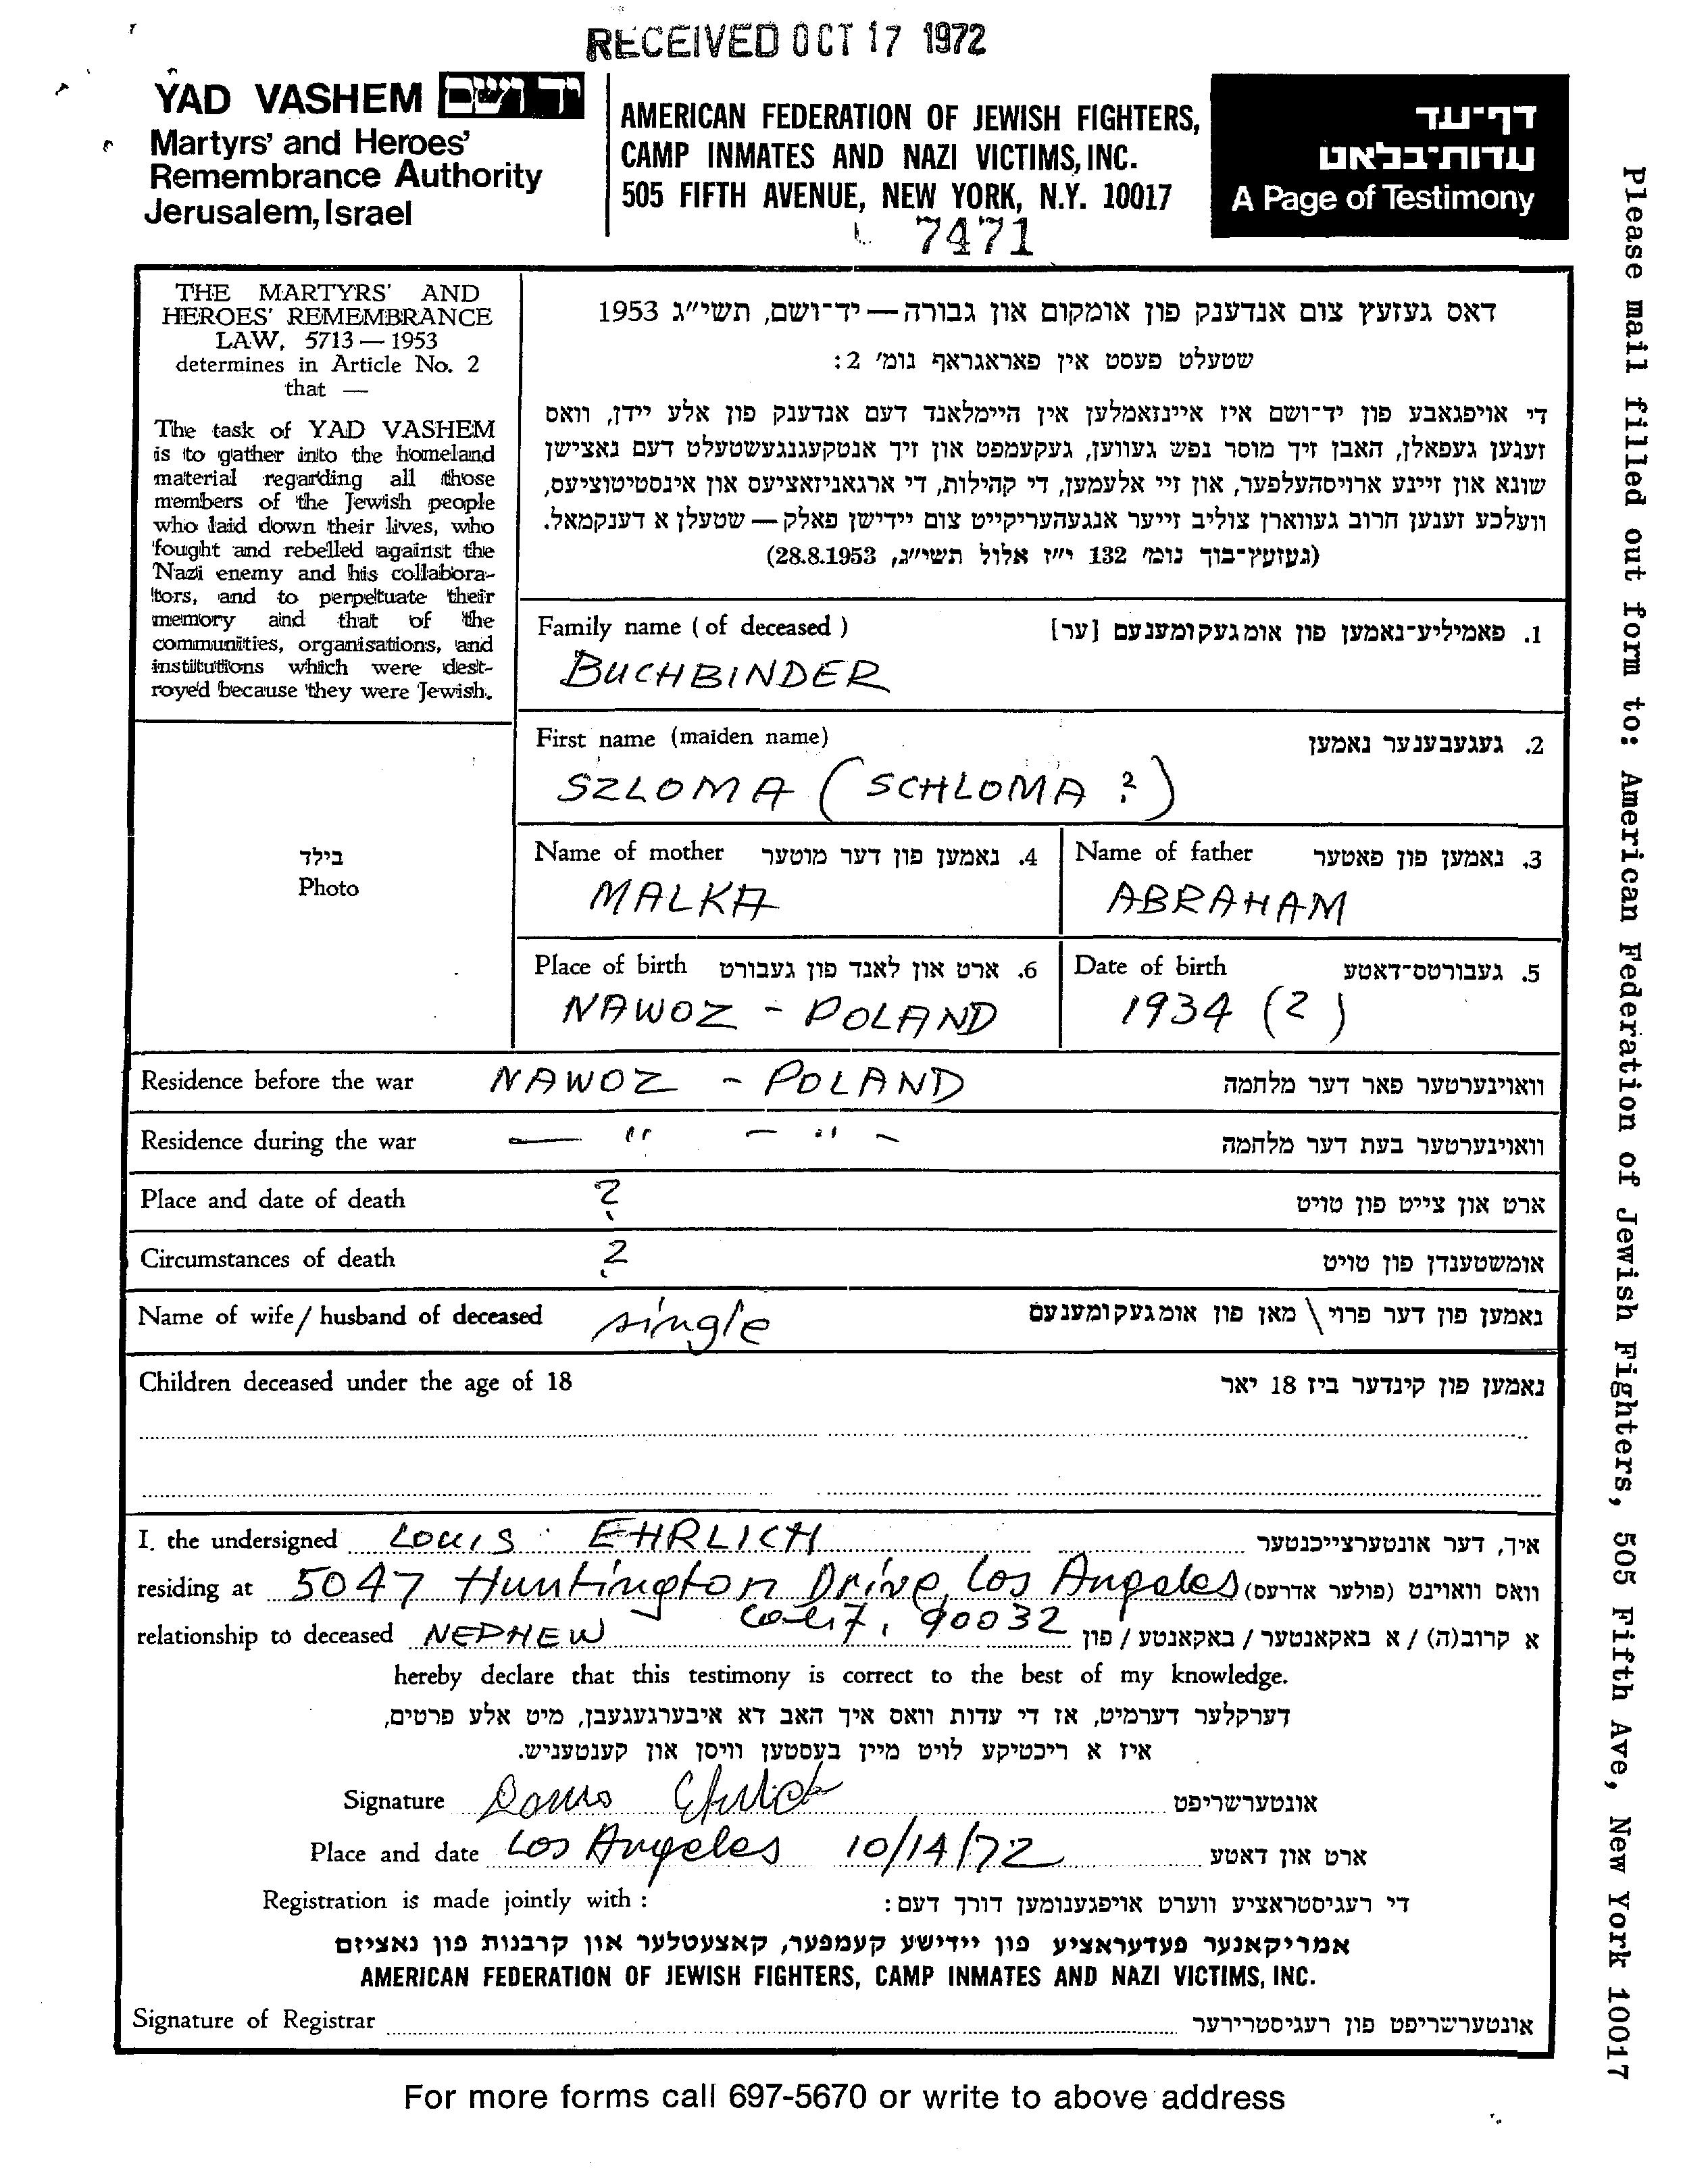 RECEIVED OCT 17 1972
YAD VASHEM יד ושם
Martyrs' and Heroes'
Remembrance Authority
Jerusalem, Israel
AMERICAN FEDERATION OF JEWISH FIGHTERS,
CAMP INMATES AND NAZI VICTIMS, INC.
505 FIFTH AVENUE, NEW YORK, N.Y. 10017
7471
דף־עד
עדות־בלאט
A Page of Testimony
THE MARTYRS' AND
HEROES' REMEMBRANCE
LAW, 5713 — 1953
determines in Article No. 2
that —
The task of YAD VASHEM
is to gather into the homeland
material regarding all those
members of the Jewish people
who laid down their lives, who
fought and rebelled against the
Nazi enemy and his collabora-
tors, and to perpetuate their
memory and that of the
communities, organisations, and
institutions which were dest-
royed because they were Jewish.
דאס געזעץ צום אנדענק פון אומקום און גבורה — יד־ושם, תשי״ג 1953
שטעלט פעסט אין פאראגראף נומ׳ 2:
די אויפגאבע פון יד־ושם איז איינזאמלען אין היימלאנד דעם אנדענק פון אלע יידן, וואס
זענען געפאלן, האבן זיך מוסר נפש געווען, געקעמפט און זיך אנטקעגנגעשטעלט דעם נאצישן
שונא און זיינע ארויסהעלפער, און זיי אלעמען, די קהילות, די ארגאניזאציעס און אינסטיטוציעס,
וועלכע זענען חרוב געווארן צוליב זייער אנגעהעריקייט צום יידישן פאלק — שטעלן א דענקמאל.
(געזעץ־בוך נומ׳ 132 י״ז אלול תשי״ג, 28.8.1953)
Family name ( of deceased )
1. פאמיליע־נאמען פון אומגעקומענעם [ער]
BUCHBINDER
First name (maiden name)
2. געגעבענער נאמען
SZLOMA ( SCHLOMA ? )
בילד
Photo
Name of mother 4. נאמען פון דער מוטער
MALKA
Name of father 3. נאמען פון פאטער
ABRAHAM
Place of birth 6. ארט און לאנד פון געבורט
NAWOZ - POLAND
Date of birth 5. געבורטס־דאטע
1934 (?)
Residence before the war NAWOZ - POLAND וואוינערטער פאר דער מלחמה
Residence during the war — " — " — וואוינערטער בעת דער מלחמה
Place and date of death ? ארט און צייט פון טויט
Circumstances of death ? אומשטענדן פון טויט
Name of wife / husband of deceased single נאמען פון דער פרוי \ מאן פון אומגעקומענעם
Children deceased under the age of 18 נאמען פון קינדער ביז 18 יאר
I. the undersigned LOUIS EHRLICH איך, דער אונטערצייכנטער
residing at 5047 Huntington Drive, Los Angeles וואס וואוינט (פולער אדרעס)
Calif. 90032
relationship to deceased NEPHEW א קרוב(ה) / א באקאנטער / באקאנטע / פון
hereby declare that this testimony is correct to the best of my knowledge.
דערקלער דערמיט, אז די עדות וואס איך האב דא איבערגעגעבן, מיט אלע פרטים,
איז א ריכטיקע לויט מיין בעסטען וויסן און קענטעניש.
Signature Louis Ehrlich אונטערשריפט
Place and date Los Angeles 10/14/72 ארט און דאטע
Registration is made jointly with : די רעגיסטראציע ווערט אויפגענומען דורך דעם:
אמריקאנער פעדעראציע פון יידישע קעמפער, קאצעטלער און קרבנות פון נאציזם
AMERICAN FEDERATION OF JEWISH FIGHTERS, CAMP INMATES AND NAZI VICTIMS, INC.
Signature of Registrar אונטערשריפט פון רעגיסטרירער
For more forms call 697-5670 or write to above address
Please mail filled out form to: American Federation of Jewish Fighters, 505 Fifth Ave, New York 10017